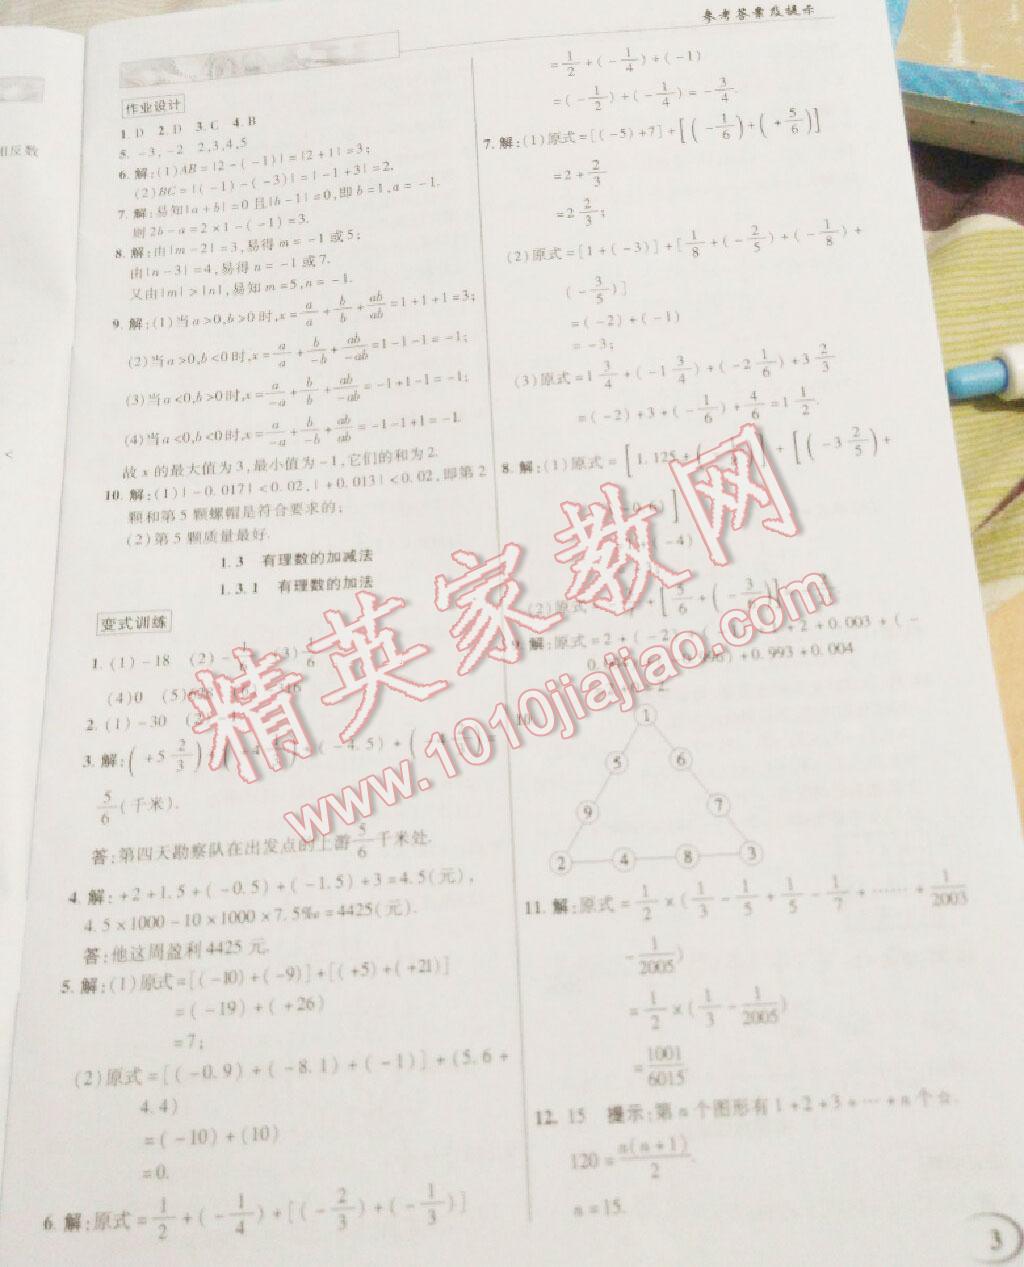 参考答案及提示
相反数
<
作业设计
1. D 2. D 3. C 4. B
5. -3, -2 2,3,4,5
6. 解:(1)AB=|2-(-1)|=|2+1|=3;
(2)BC=|(-1)-(-3)|=|-1+3|=2.
7. 解:易知|a+b|=0且|b-1|=0,即b=1,a=-1.
则2b-a=2×1-(-1)=3.
8. 解:由|m-2|=3,易得m=-1或5;
由|n-3|=4,易得n=-1或7.
又由|m|>|n|,易知m=5,n=-1.
9. 解:(1)当a>0,b>0时,x=a/a+b/b+ab/ab=1+1+1=3;
(2)当a>0,b<0时,x=a/a+b/-b+ab/-ab=1-1-1=-1;
(3)当a<0,b>0时,x=a/-a+b/b+ab/-ab=-1+1-1=-1;
(4)当a<0,b<0时,x=a/-a+b/-b+ab/ab=-1-1+1=-1.
故x的最大值为3,最小值为-1,它们的和为2.
10. 解:(1)|-0.017|<0.02,|+0.013|<0.02,即第2
颗和第5颗螺帽是符合要求的;
(2)第5颗质量最好.
1.3 有理数的加减法
1.3.1 有理数的加法
变式训练
1. (1)-18 (2)- (3)-
(4)0 (5)
2. (1)-30 (2)-
3. 解:(+5 2/3)+ (-4.5)+
5/6(千米).
答:第四天勘察队在出发点的上游5/6千米处.
4. 解:+2+1.5+(-0.5)+(-1.5)+3=4.5(元),
4.5×1000-10×1000×7.5‰=4425(元).
答:他这周盈利4425元.
5. 解:(1)原式=[(-10)+(-9)]+[(+5)+(+21)]
=(-19)+(+26)
=7;
(2)原式=[(-0.9)+(-8.1)+(-1)]+(5.6+
4.4)
=(-10)+(10)
=0.
6. 解:原式=1/2+(-1/4)+[(-2/3)+(-1/3)]
=1/2+(-1/4)+(-1)
=(-1/2)+(-1/4)=-3/4.
7. 解:(1)原式=[(-5)+7]+[(-1/6)+(+5/6)]
=2+2/3
=2 2/3;
(2)原式=[1+(-3)]+[1/8+(-2/5)+(-1/8)+
(-3/5)]
=(-2)+(-1)
=-3;
(3)原式=1 3/4+(-1 3/4)+(-2 1/6)+3 2/3
=(-2)+3+(-1/6)+4/6=1 1/2.
8. 解:(1)原式=[1.125+( )]+[(-3 2/5)+
(-0.6)]
(-4)
(2)原式= +[5/6+(-3/
9. 解:原式=2+(-2)+ 2+0.003+(-
+0.993+0.004
10.
1
5 6
9 7
2 4 8 3
11. 解:原式=1/2×(1/3-1/5+1/5-1/7+……+1/2003
-1/2005)
=1/2×(1/3-1/2005)
=1001/6015.
12. 15 提示:第n个图形有1+2+3+…+n个☆.
120=n(n+1)/2.
n=15.
3
精英家教网
www.1010jiajiao.com